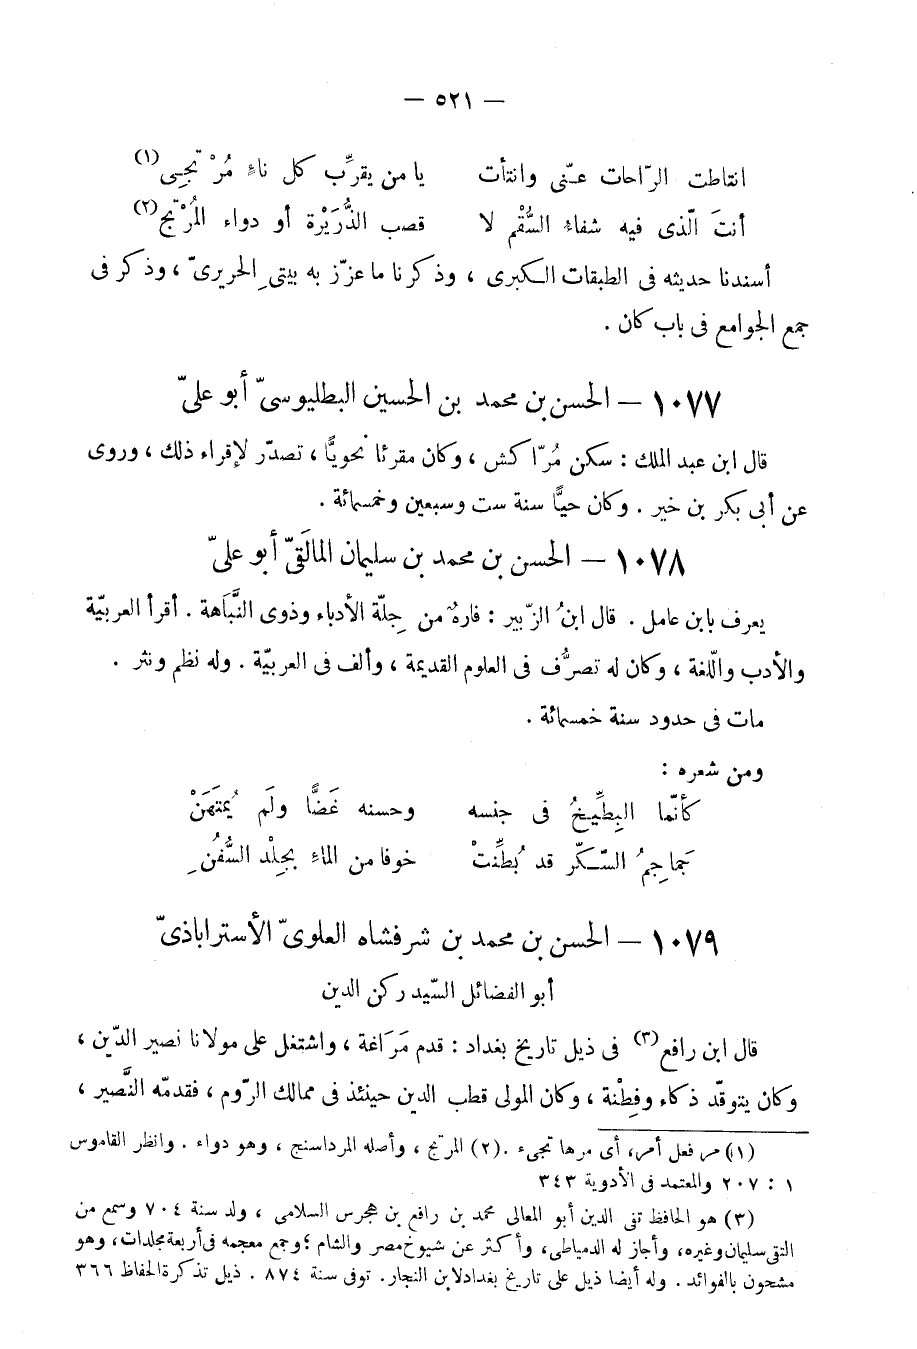 — ٥٢١ —
انتاطت الرّاحات عنّى وانتأت يا من يقرِّب كل ناءٍ مُرْ تجى(١)
أنتَ الّذى فيه شفاءُ السُّقْم لا قصب الذُّرَيْرة أو دواء المُرْتج(٢)
أسندنا حديثه فى الطبقات الكبرى ، وذكرنا ما عزّز به بيتىِ الحريرىّ ، وذكر فى
جمع الجوامع فى باب كان .
١٠٧٧ — الحسن بن محمد بن الحسين البطليوسىّ أبو علىّ
قال ابن عبد الملك : سكن مُرّاكش ، وكان مقرئا نحويًّا ، تصدّر لإقراء ذلك ، وروى
عن أبى بكر بن خير . وكان حيًّا سنة ست وسبعين وخمسمائة .
١٠٧٨ — الحسن بن محمد بن سليمان المالَقىّ أبو علىّ
يعرف بابن عامل . قال ابنُ الزّبير : فارهٌ من جِلّة الأدباء وذوى النَّباهة . أقرأ العربيّة
والأدب واللّغة ، وكان له تصرُّف فى العلوم القديمة ، وألف فى العربيّة . وله نظم ونثر .
مات فى حدود سنة خمسمائة .
ومن شعره :
كأنّما البِطِّيخُ فى جنسه وحسنه غَضًّا ولَم يُمتَهَنْ
جماجِمُ السّكّر قد بُطِّنتْ خوفا من الماءِ بجِلْد السُّفُنِ
١٠٧٩ — الحسن بن محمد بن شرفشاه العلوىّ الأستراباذىّ
أبو الفضائل السّيد ركن الدين
قال ابن رافع(٣) فى ذيل تاريخ بغداد : قدم مَرَاغة ، واشتغل على مولانا نصير الدّين ،
وكان يتوقّد ذكاء وفِطْنة ، وكان المولى قطب الدين حينئذ فى ممالك الرّوم ، فقدمّه النَّصير ،
(١) مر فعل أمر، أى مرها تجىء . (٢) المرتج ، وأصله المرداسنج ، وهو دواء . وانظر القاموس
١ : ٢٠٧ والمعتمد فى الأدوية ٣٤٣
(٣) هو الحافظ تقى الدين أبو المعالى محمد بن رافع بن هجرس السلامى ، ولد سنة ٧٠٤ وسمع من
التقى سليمان وغيره، وأجاز له الدمياطى، وأكثر عن شيوخ مصر والشام ؛ وجمع معجمه فى أربعة مجلدات، وهو
مشحون بالفوائد . وله أيضا ذيل على تاريخ بغداد لابن النجار. توفى سنة ٨٧٤ . ذيل تذكرة الحفاظ ٣٦٦